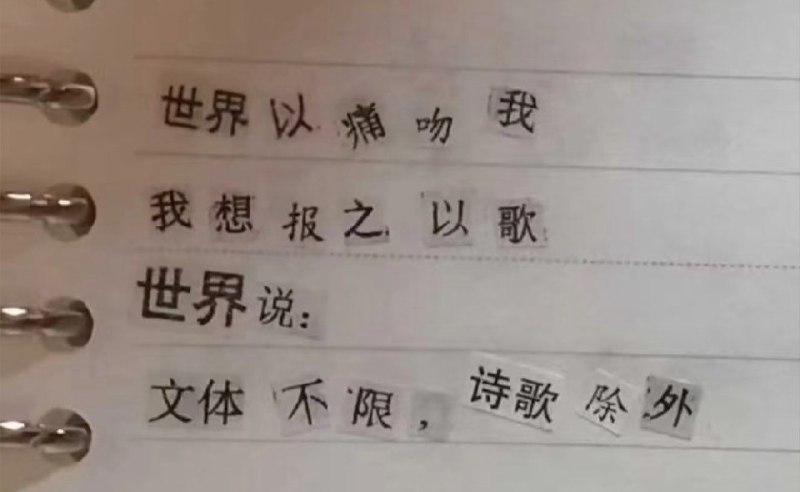 世界以痛吻我
我想报之以歌
世界说：
文体不限，诗歌除外